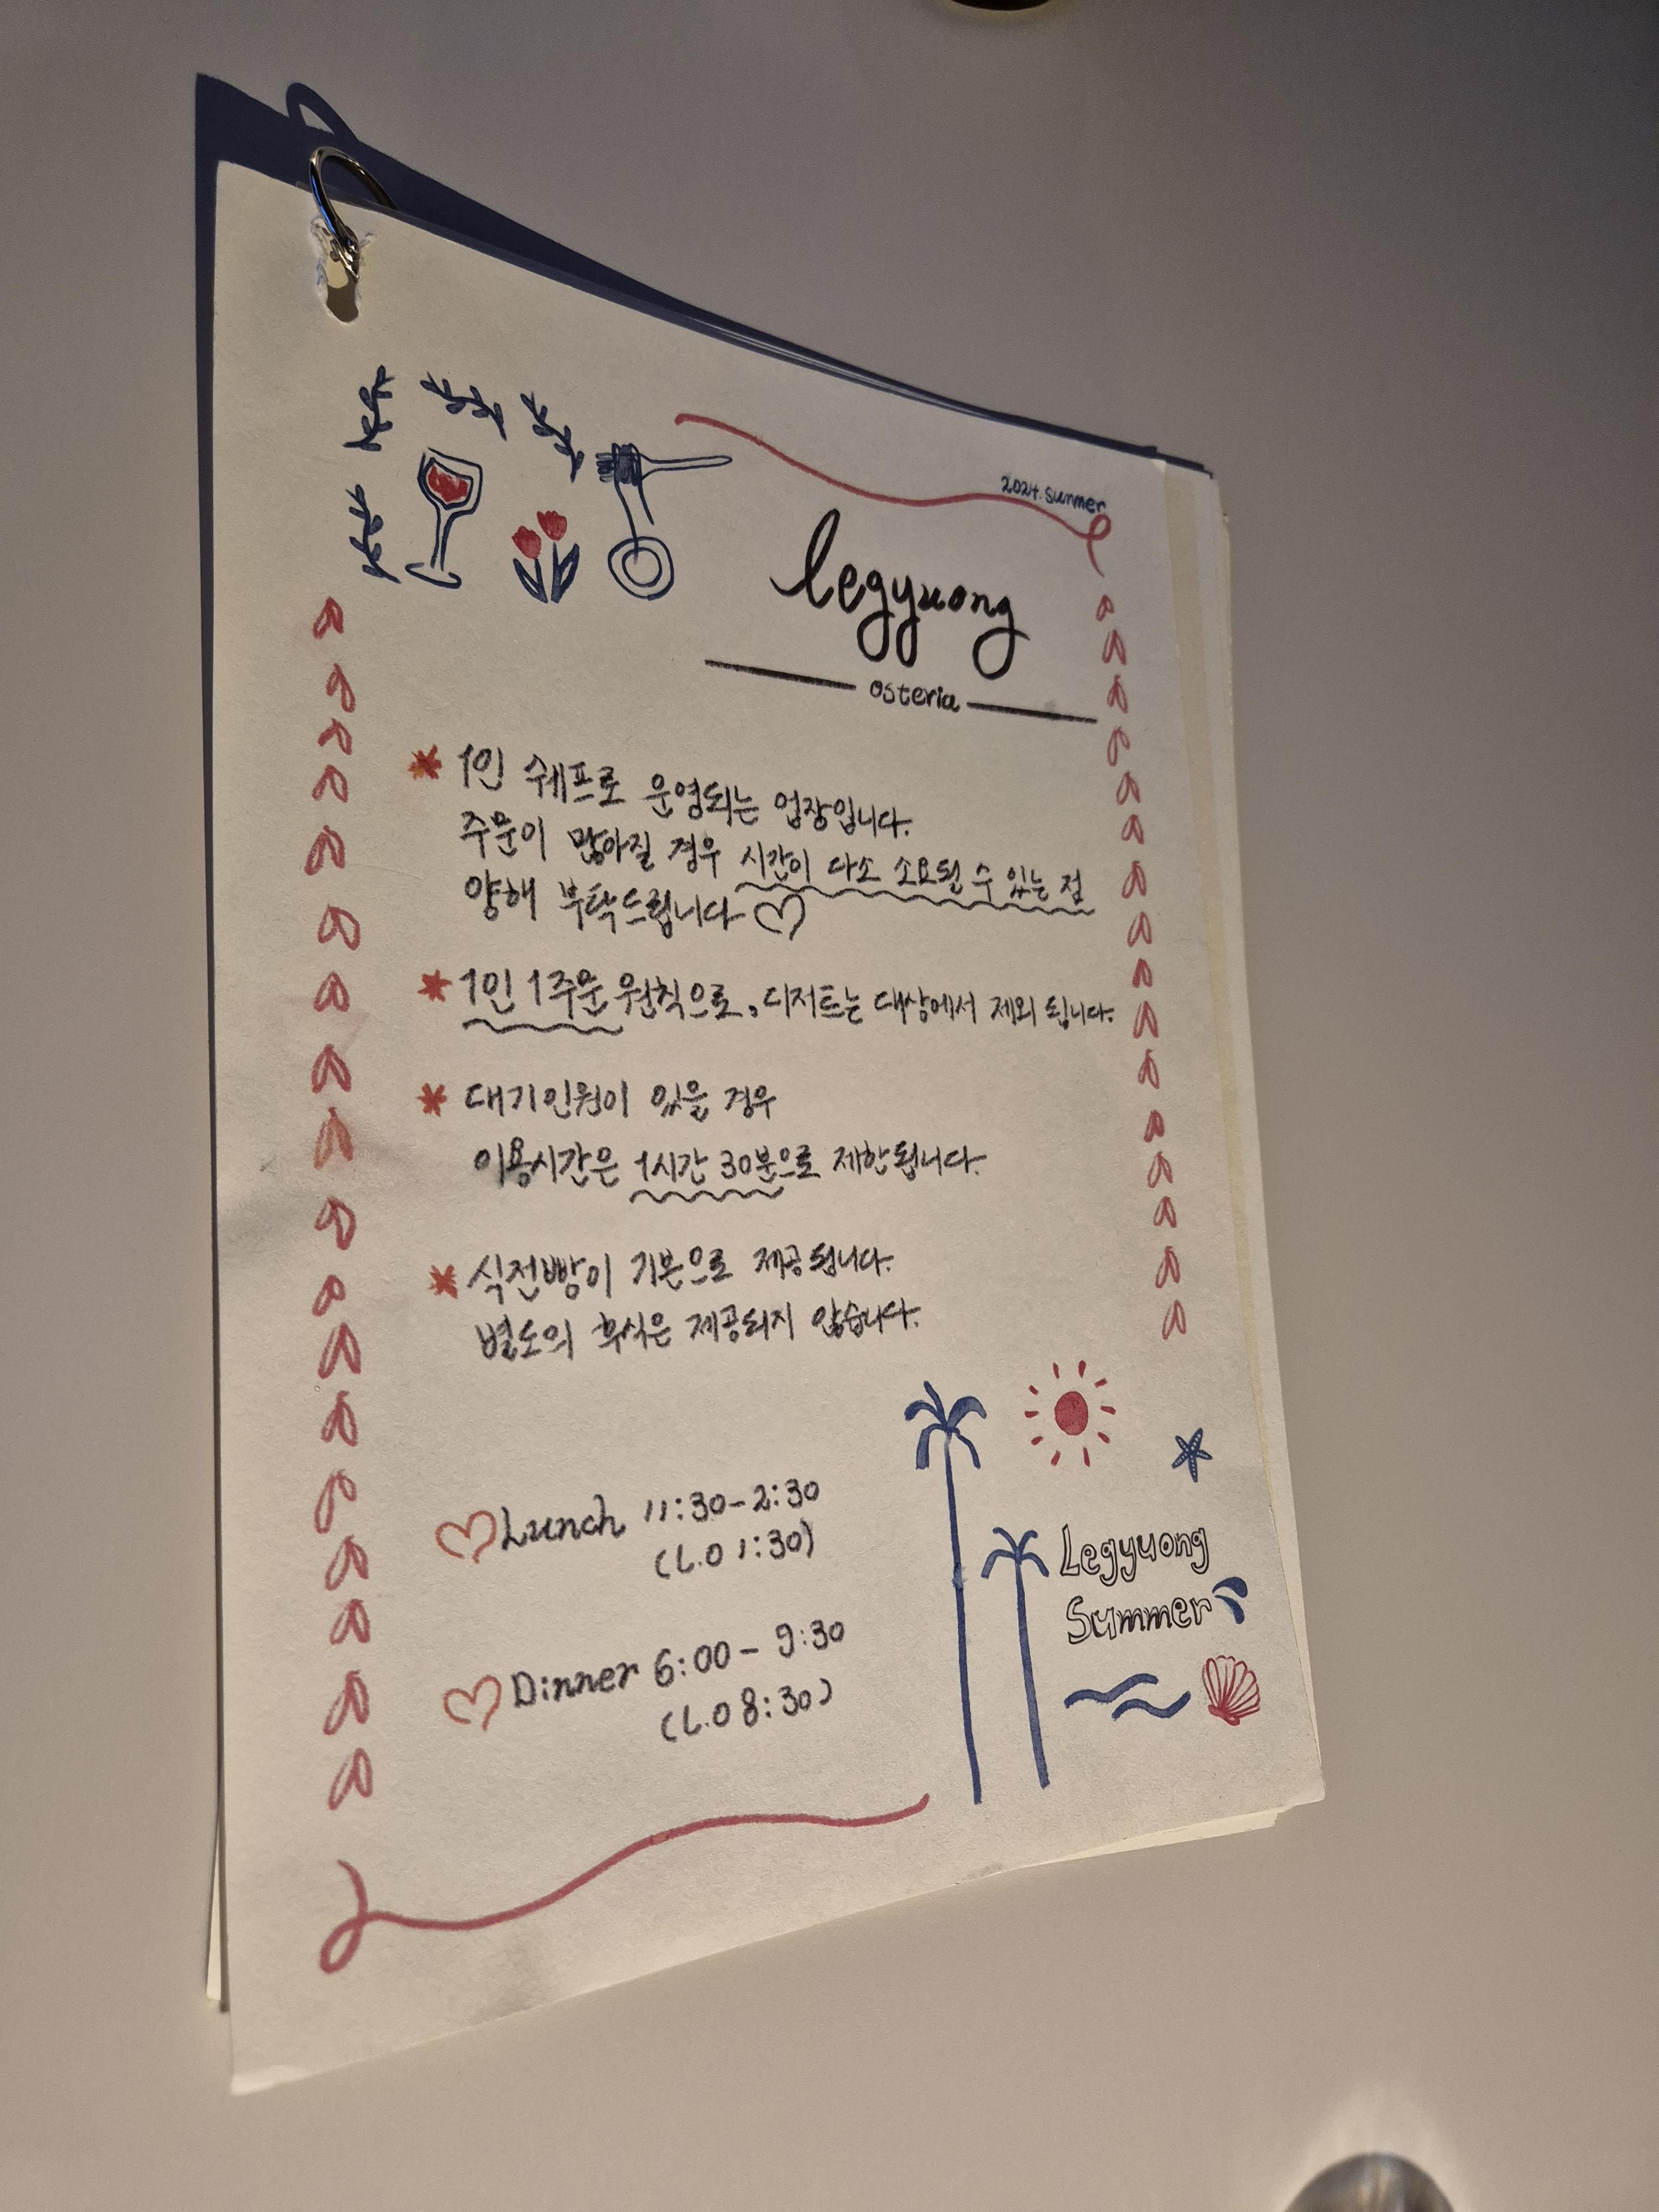 2024. summer
legyuong
osteria
* 1인 쉐프로 운영되는 업장입니다.
주문이 많아질 경우 시간이 다소 소요될 수 있는 점
양해 부탁드립니다♡
* 1인 1주문 원칙으로, 디저트는 대상에서 제외 됩니다.
* 대기인원이 있을 경우
이용시간은 1시간 30분으로 제한됩니다.
* 식전빵이 기본으로 제공됩니다.
별도의 후식은 제공되지 않습니다.
♡Lunch 11:30-2:30
(L.O 1:30)
♡Dinner 6:00-9:30
(L.O 8:30)
Legyuong
Summer